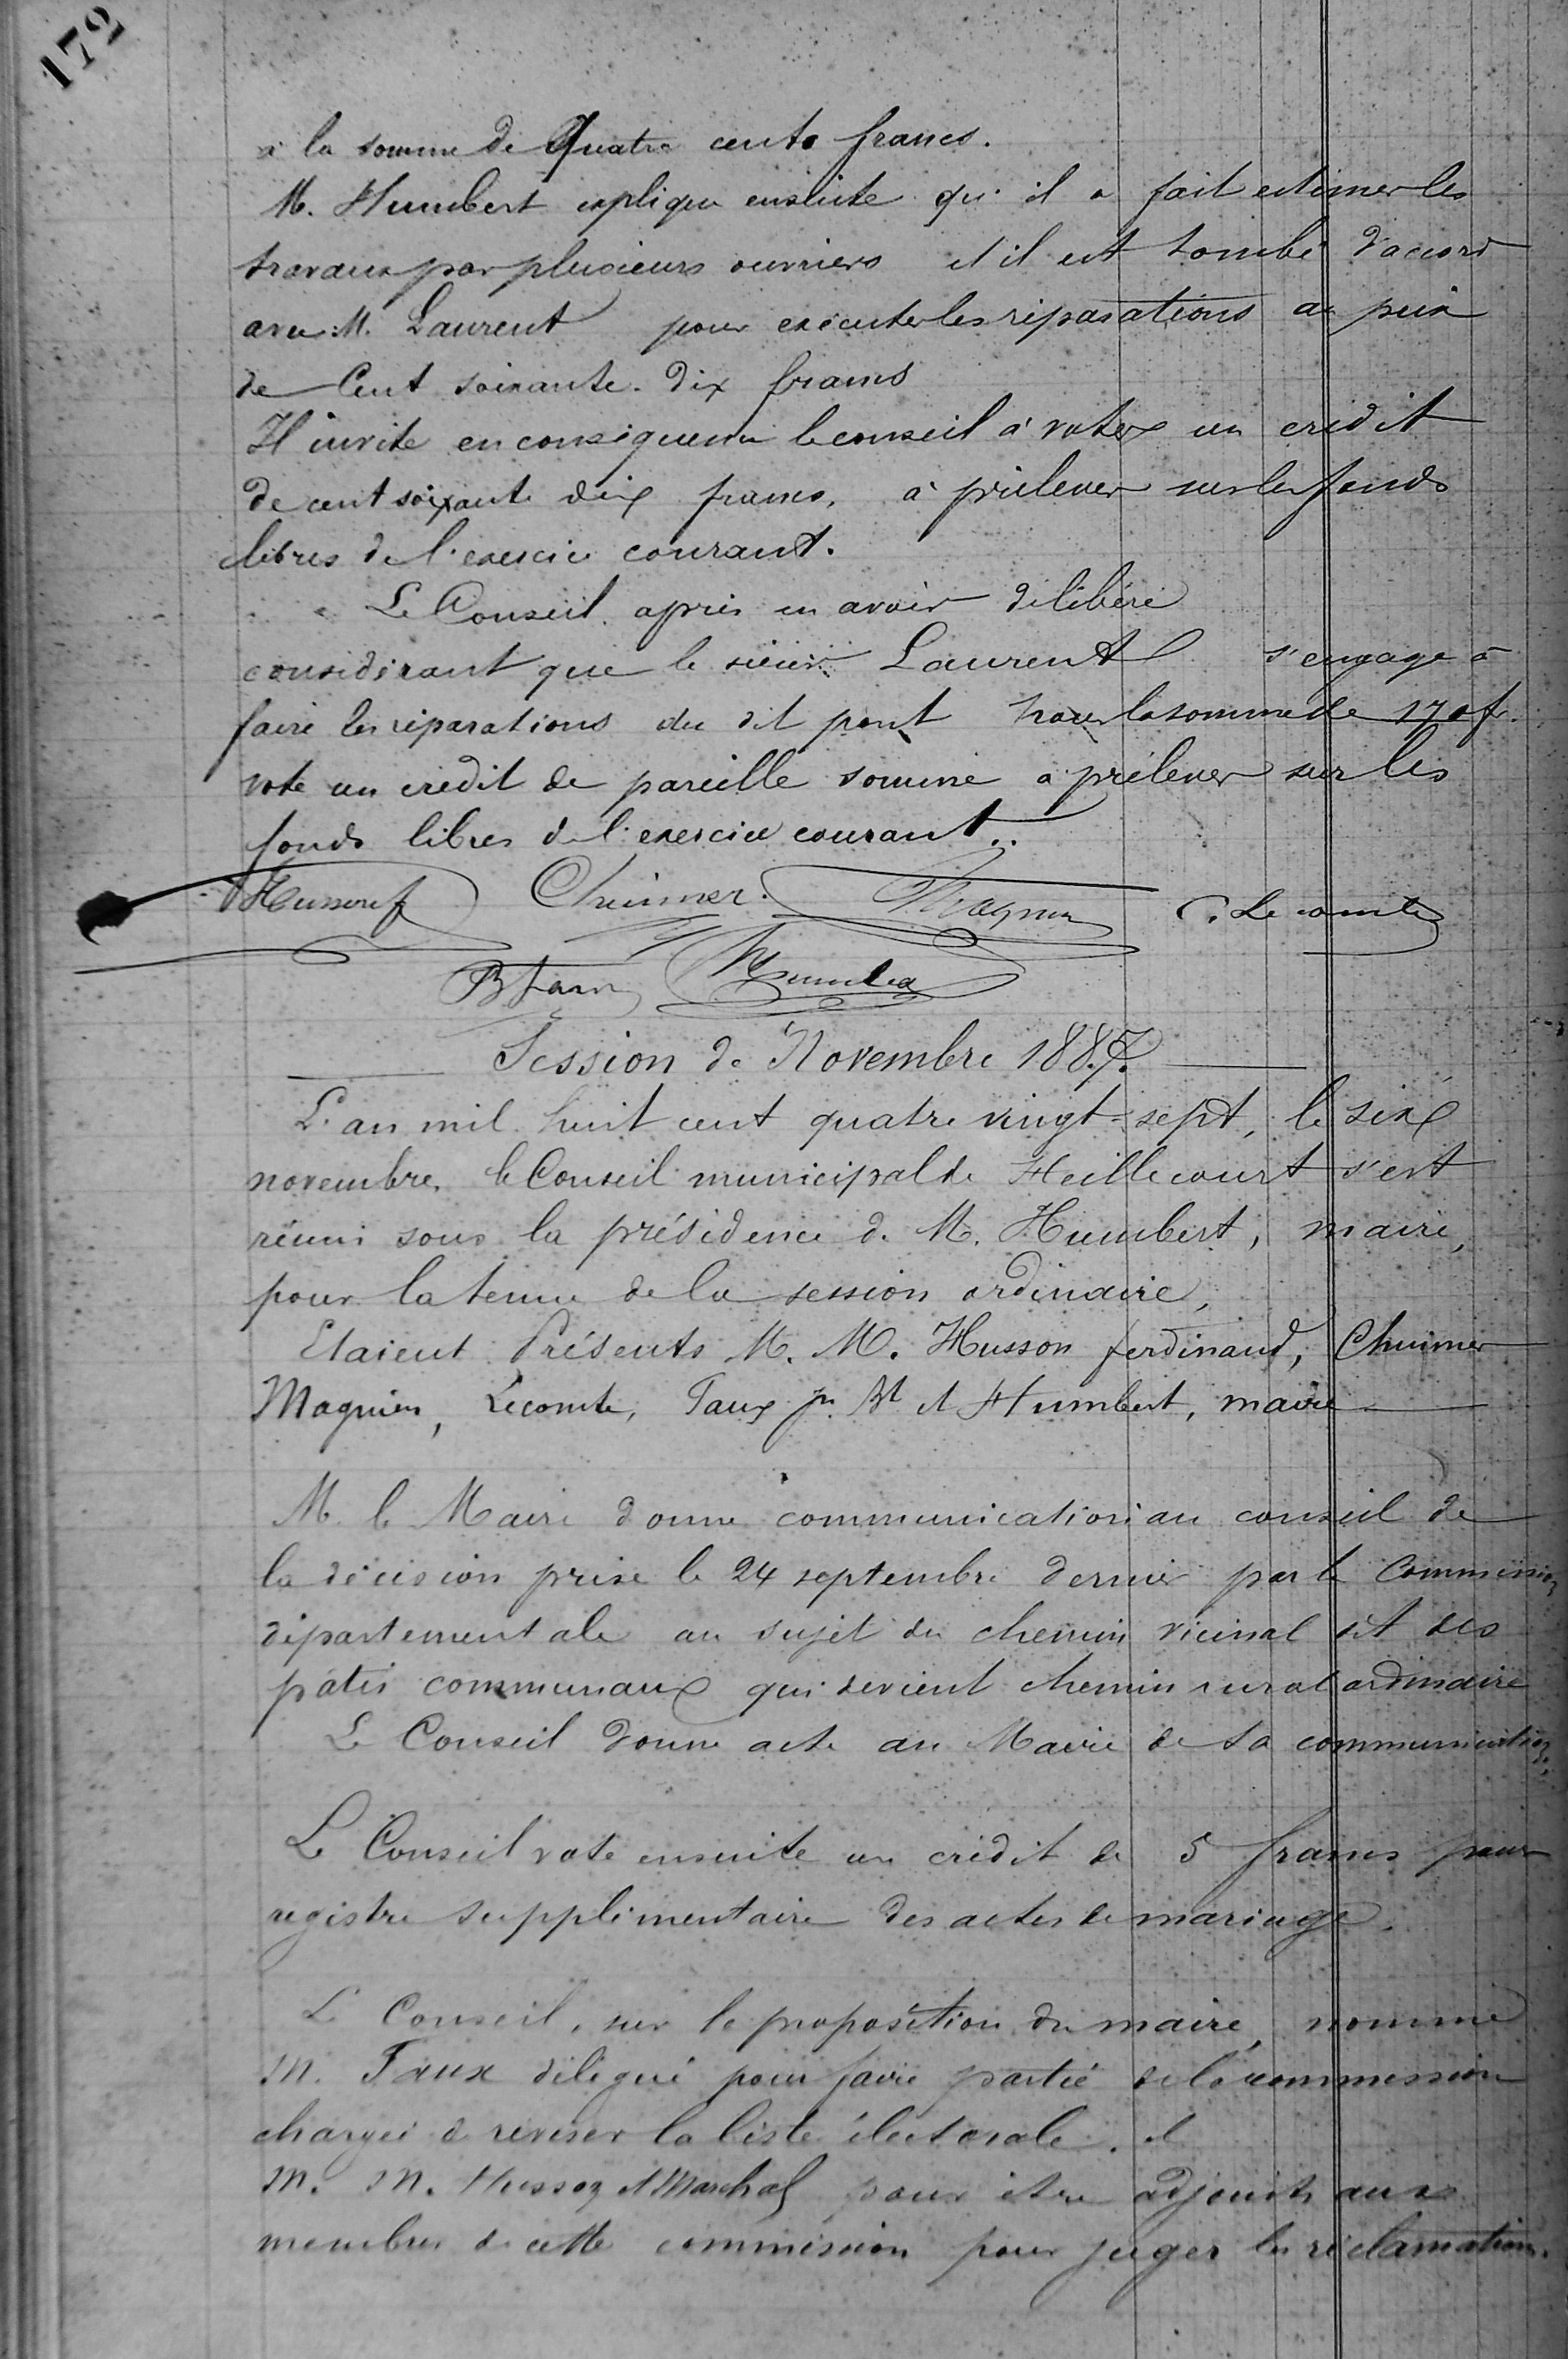 172
à la somme de Quatre cents francs.
M. Humbert explique ensuite qu'il a fait estimer les
travaux par plusieurs ouvriers et il est tombé d'accord
avec M. Laurent pour exécuter les réparations au prix
de Cent soixante-dix francs
Il invite en conséquence le conseil à voter un crédit
de cent soixante dix francs, à prélever sur les fonds
libres de l'exercice courant.
Le Conseil après en avoir délibéré
considérant que le sieur Laurent s'engage à
faire les réparations du dit pont pour la somme de 170 f.
vote un crédit de pareille somme à prélever sur les
fonds libres de l'exercice courant.
Husson f Chuimer. Magnien C. Le comte
B Faux Humbert
Session de Novembre 1887.
L'an mil huit cent quatre vingt-sept, le six
novembre, le Conseil municipal de Heillecourt s'est
réuni sous la présidence de M. Humbert, maire,
pour la tenue de la session ordinaire,
Etaient Présents M. M. Husson ferdinand, Chuimer
Magnien, Lecomte, Faux Jn Bt et Humbert, maire
M. le Maire donne communication au conseil de
la décision prise le 24 septembre dernier par la Commission
départementale au sujet du chemin vicinal dit des
patis communaux qui devient chemin rural ordinaire
Le Conseil donne acte au Maire de sa communication.
Le Conseil vote ensuite un crédit de 5 francs pour
registre supplémentaire des actes de mariage.
Le Conseil, sur la proposition du maire, nomme
M. Faux délégué pour faire partie de la commission
chargée de reviser la liste électorale. et
M. M. Husson et Marchal pour être adjoints aux
membres de cette commission pour juger les réclamations.